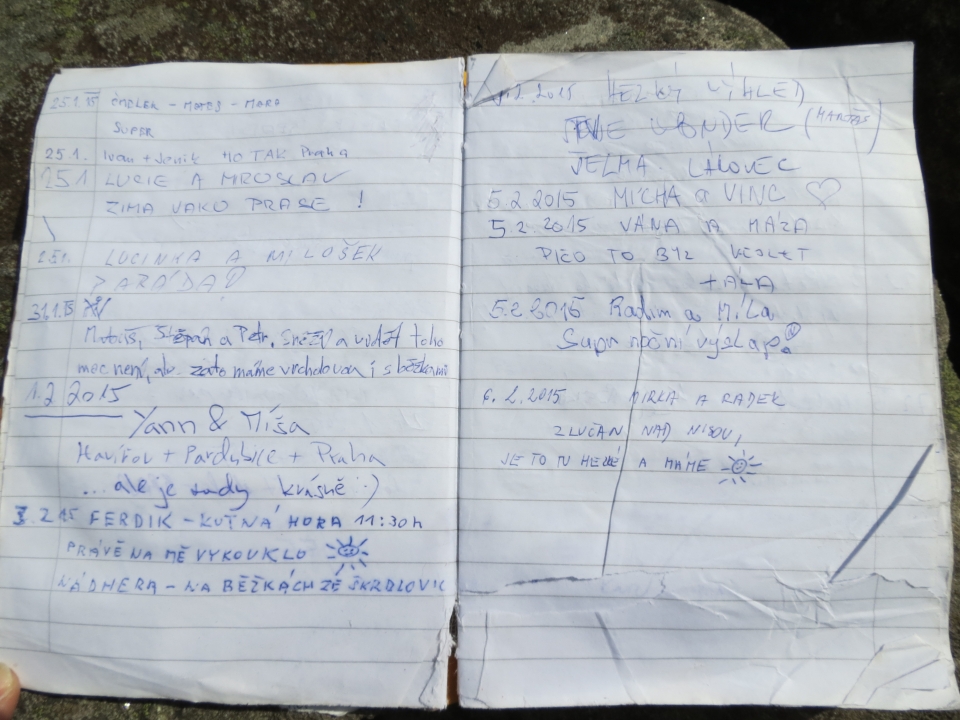 25.1.15 - MATES - MARA
SUPER
25.1. Ivan + HO TAK Praha
25.1 LUCIE A MIROSLAV
ZIMA JAKO PRASE !
25.1. LUCINKA A MILOŠEK
PARÁDA!
31.1.15
Matouš, Štěpán a Petr, Sněží a vidět toho
moc není, ale zato máme vrchdovou i s běžkami
1.2 2015
Yann & Míša
Havířov + Pardubice + Praha
... ale je tady krásně :)
FERDIK - KUTNÁ HORA 11:30h
PRÁVĚ NA MĚ VYKOUKLO
NÁDHERA - NA BĚŽKÁCH ZE ŠKRDLOVIC
2015 HEZKÝ VÝHLED
5.2.2015 MÍCHA a VINC ♡
5.2.2015 VÁŇA A MÁZA
TO BYL
5.2.2015 Radim a Míla
Supr noční výšlap!
6.2.2015 MIRKA A RADEK
Z LUČAN NAD NISOU,
JE TO TU HEZKÉ A MÁME